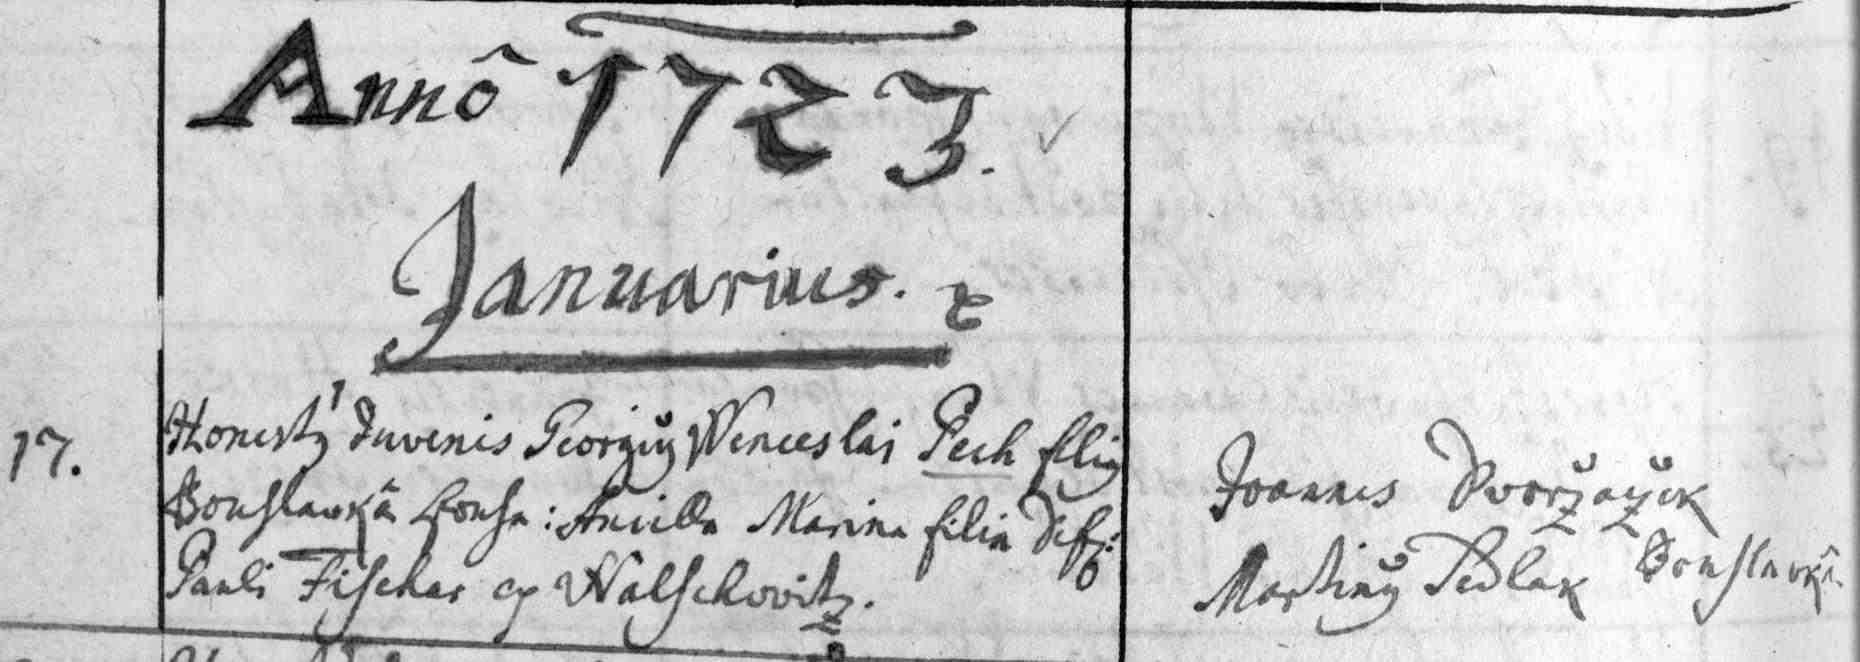 Annô 1723.
Januarius.
17.
Honestq Juvenis Georgiq Wenceslai Pech filiq
Bonslawkâ sponsa: Ancilla Marina filia Deff:
Pauli Fischer ex Walschowitz.
Joannes Dworzaczek
Martinq Sedlak Bonslawkâ